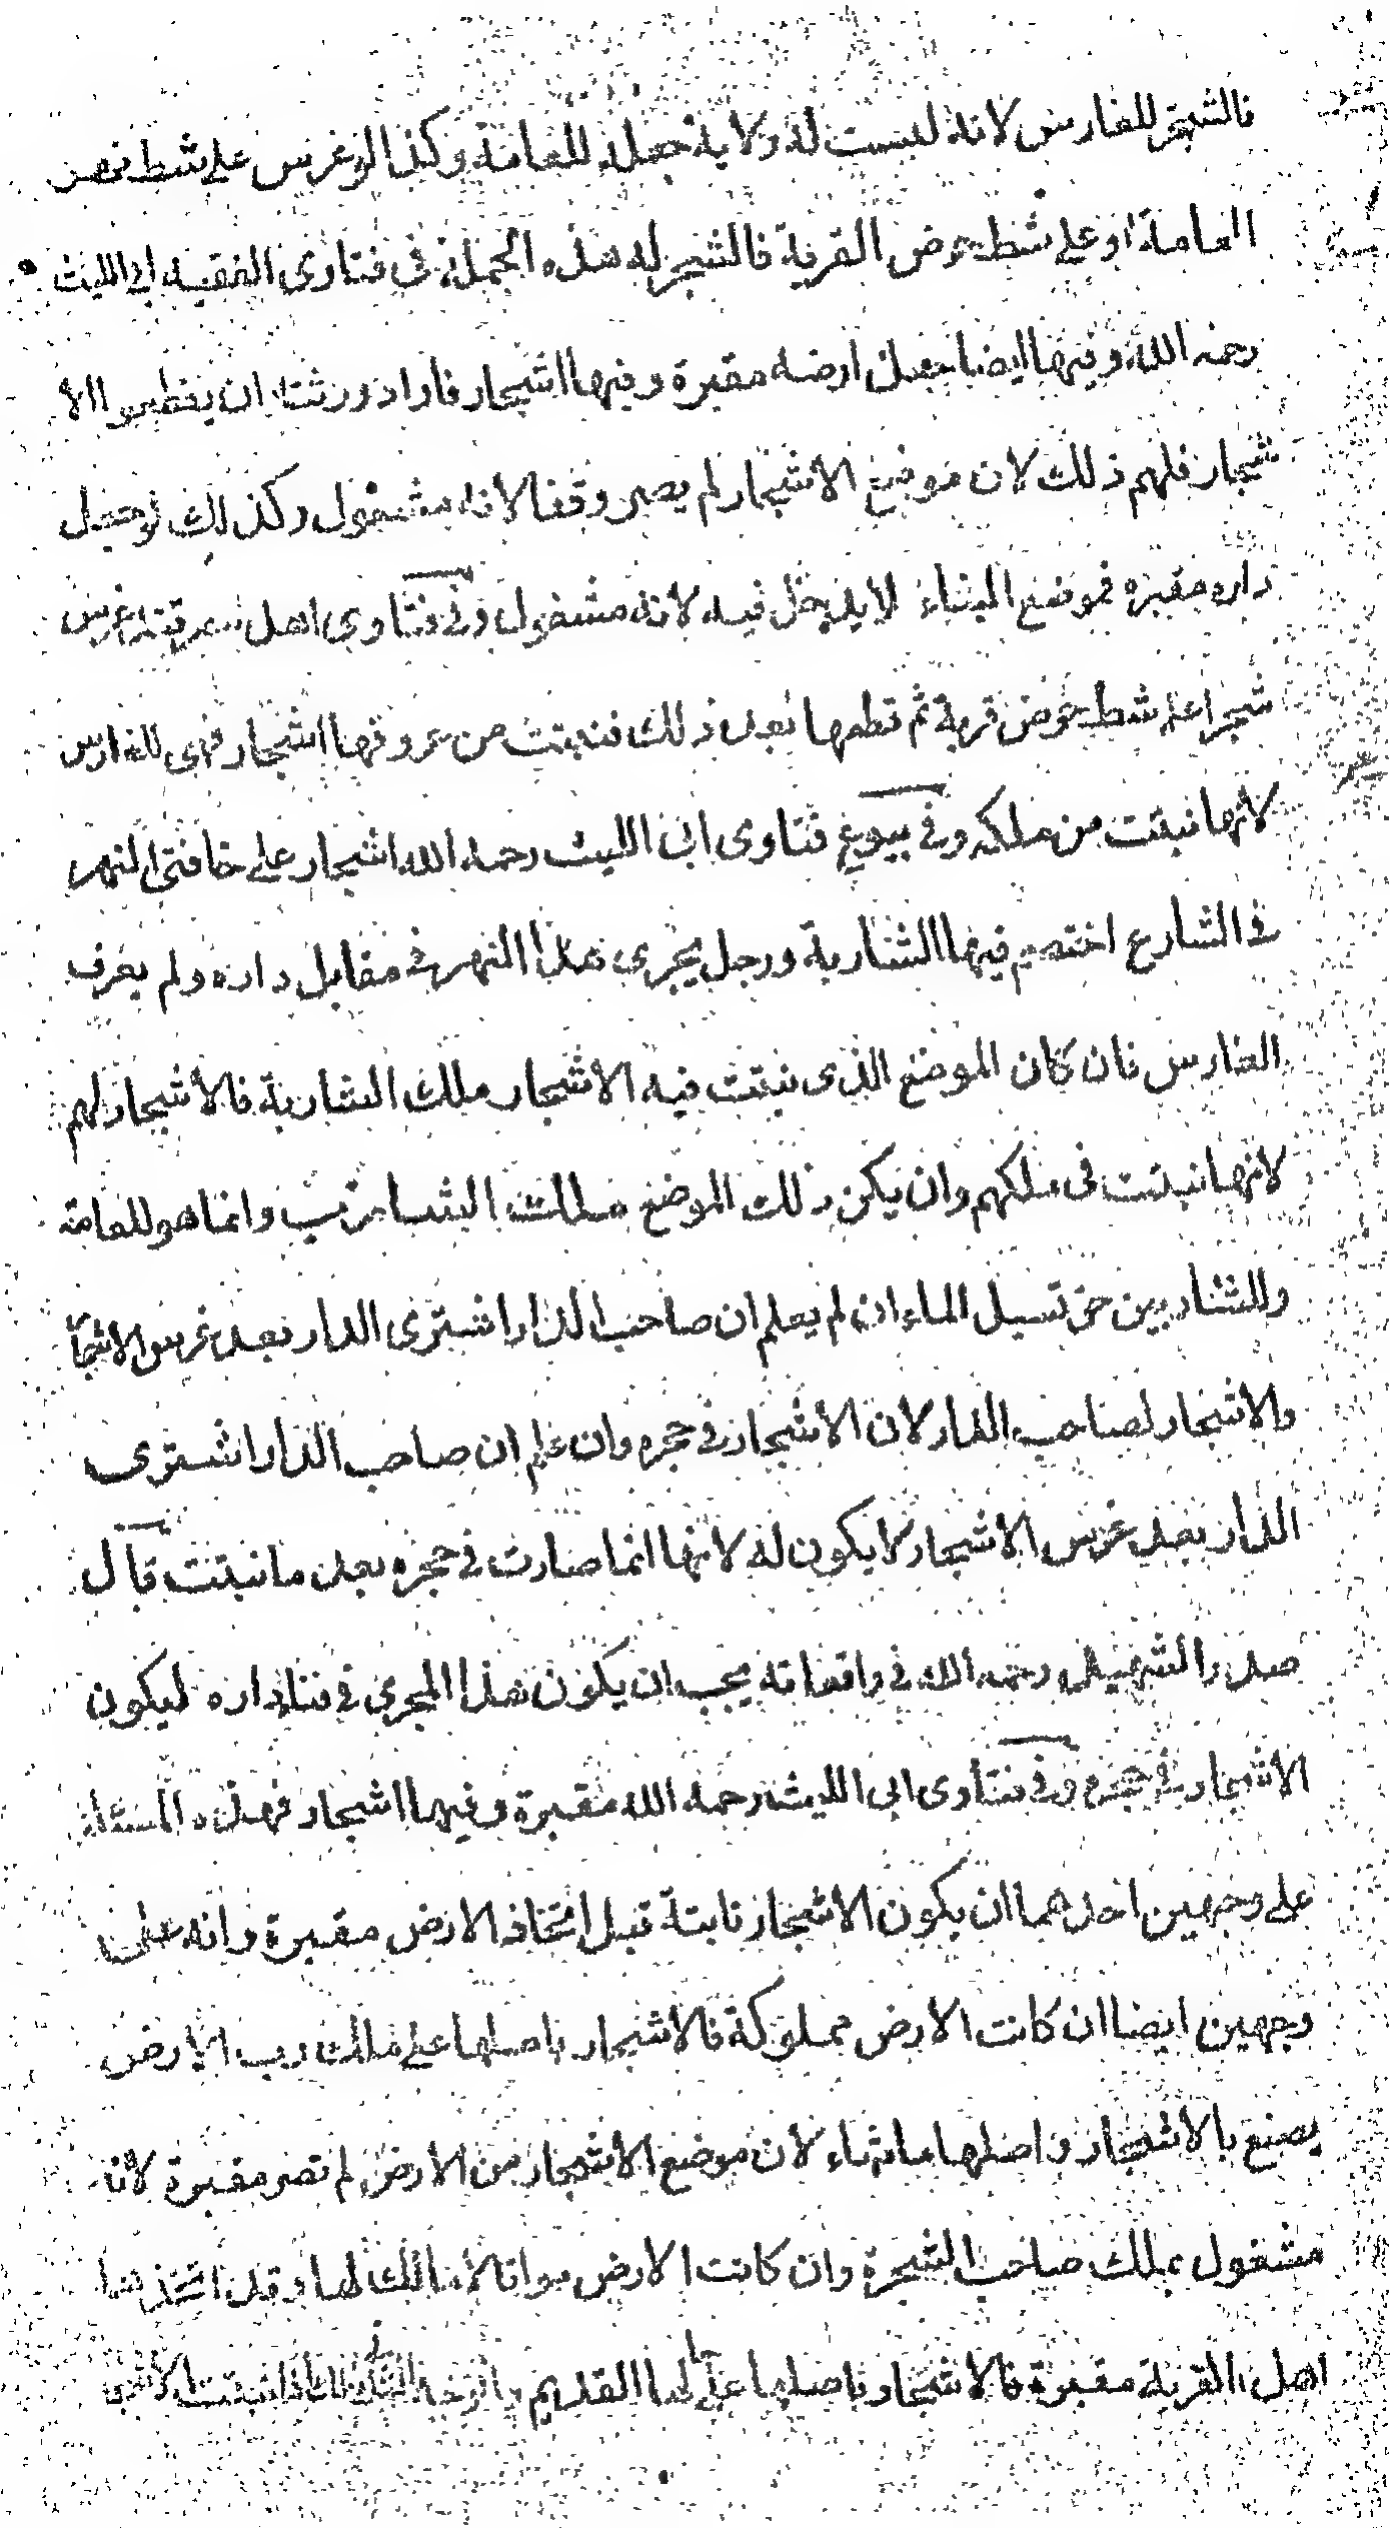 فالشجر للغارس لانه ليست له ولاية جعله للعامة وكذا لو غرس على شط نهر
العامة او على شط حوض القرية فالشجر له هذه الجملة في فتاوى الفقيه ابي الليث
رحمه الله وفيها ايضا جعل ارضه مقبرة وفيها اشجار فاراد ورثته ان يقطعوا الا
شجار فلهم ذلك لان موضع الاشجار لم يصر وقفا لانه مشغول وكذلك لو جعل
داره مقبرة فموضع البناء لا يدخل فيه لانه مشغول وفي فتاوى اهل سمرقند غرس
شجرا على شط حوض قرية ثم قطعها بعد ذلك فنبتت من عروقها اشجار فهي للغارس
لانها نبتت من ملكه وفي بيوع فتاوى ابي الليث رحمه الله اشجار على حافتي النهر
في الشارع اختصم فيها الشاربة ورجل يجري هذا النهر في مقابل داره ولم يعرف
الغارس فان كان الموضع الذي نبتت فيه الاشجار ملك الشاربة فالاشجار لهم
لانها نبتت في ملكهم وان يكن ذلك الموضع ملك الشاربين وانما هو للعامة
وللشاربين حق تسيل الماء ان لم يعلم ان صاحب الدار اشترى الدار بعد غرس الاشجا
والاشجار لصاحب الدار لان الاشجار في حجره وان علم ان صاحب الدار اشترى
الدار بعد غرس الاشجار لا يكون له لانها انما صارت في حجره بعد ما نبتت قال
صدر الشهيد رحمه الله في واقعاته يجب ان يكون هذا المجرى في فنا داره ليكون
الاشجار في حجره وفي فتاوى ابي الليث رحمه الله مقبرة وفيها اشجار فهذه المسئلة
على وجهين احدهما ان يكون الاشجار نابتة قبل اتخاذ الارض مقبرة وانه على
وجهين ايضا ان كانت الارض مملوكة فالاشجار باصلها على ملك رب الارض
يصنع بالاشجار واصلها ما شاء لان موضع الاشجار من الارض لم تصر مقبرة لانه
مشغول بملك صاحب الشجرة وان كانت الارض مواتا لا مالك لها وقد اتخذها
اهل القرية مقبرة فالاشجار باصلها على حالها القديم والوجه الثاني اذا نبتت الاشجا